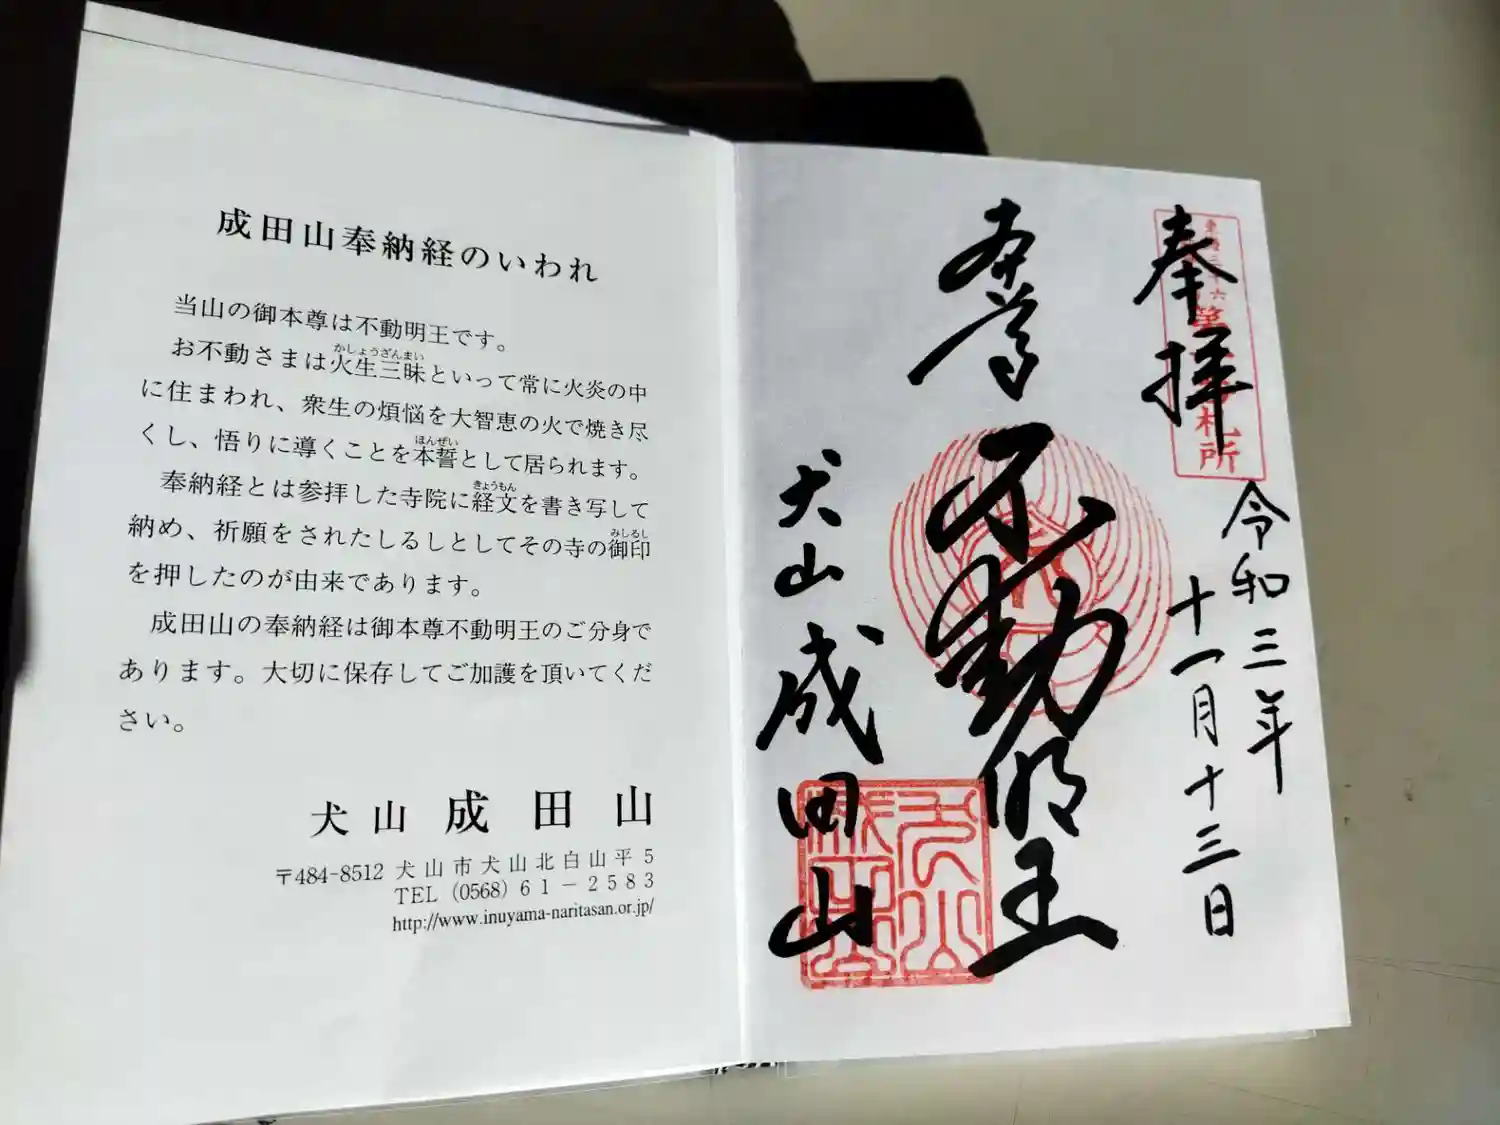 成田山奉納経のいわれ
当山の御本尊は不動明王です。
かしょうざんまい
お不動さまは火生三昧といって常に火炎の中
に住まわれ、衆生の煩悩を大智恵の火で焼き尽
ほんぜい
くし、悟りに導くことを本誓として居られます。
きょうもん
奉納経とは参拝した寺院に経文を書き写して
みしるし
納め、祈願をされたしるしとしてその寺の御印
を押したのが由来であります。
成田山の奉納経は御本尊不動明王のご分身で
あります。大切に保存してご加護を頂いてくだ
さい。
犬山 成田山
〒484-8512 犬山市犬山北白山平5
TEL (0568) 61-2583
http://www.inuyama-naritasan.or.jp/
奉拝
令和三年
十一月十三日
本尊
不動明王
犬山成田山
札所